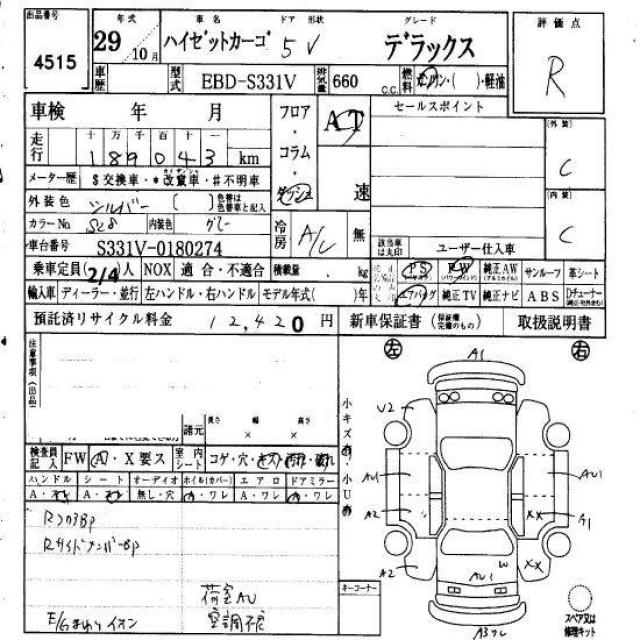 出品番号 年式 車名 ドア 形状 グレード 評価点
4515 29 10月 ハイゼットカーゴ 5 V デラックス R
車歴 型式 EBD-S331V 排気量 660 C.C. 燃料 ガソリン・( )・軽油
車検 年 月 フロア・コラム・ダッシュ AT 速 セールスポイント [外装] C
走行 十 万 千 百 十 一
189043 km
メーター歴 $交換車・*改竄車・#不明車 [内装] C
外装色 シルバー ( ) 色替は色替車と記入
カラーNo. S28 内装色 グレー 冷房 A/C 無
車台番号 S331V-0180274 該当車は丸印 ユーザー仕入車
乗車定員 2/4人 NOX 適合・不適合 積載量 . kg PS PW 純正AW サンルーフ 革シート
輸入車 ディーラー・並行 左ハンドル・右ハンドル モデル年式( )年 エアバッグ 純正TV 純正ナビ ABS Dチューナー
預託済リサイクル料金 12,420円 新車保証書 (保証欄完備のもの) 取扱説明書
注意事項(出品
左 右
A1
小キズ有・小U有
U2
AU1 AU1
A2 XX A1
A2 W XX
AU1
A3ワレ
諸元 長さ 幅 高さ
× ×
検査員記入 FW A・X要ス 室内シート コゲ・穴・キズ・汚れ・破れ
ハンドル シート オーディオ ホイル(カバー) エアロ ドアミラー
A・スレ A・スレ 無し・穴 A・ワレ A・ワレ A・ワレ
RコアサポBP
RサイドメンバーBP
荷室AU
E/Gまわりイオン 空調不良
キーコーナー
スペア又は修理キット